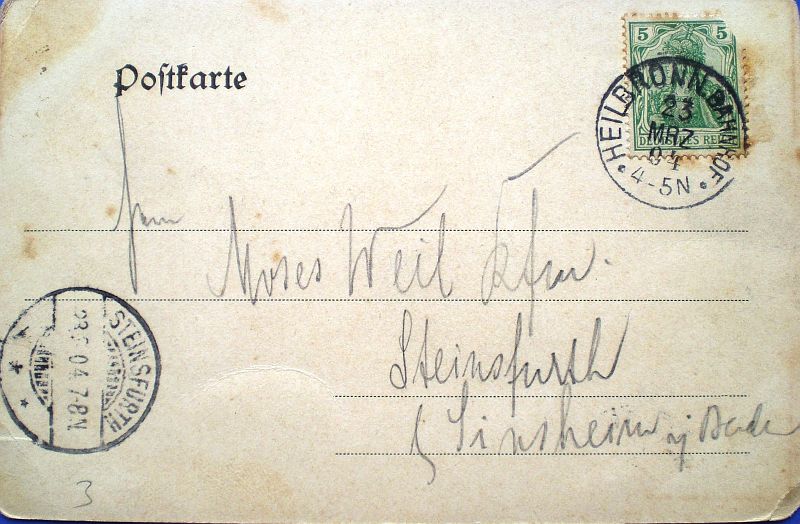 5 5
DEUTSCHES REICH
HEILBRONN BAHNHOF
23
MRZ
04
4-5N
Poſtkarte
Herrn
Moses Weil Kfm.
Steinsfurth
b/ Sinsheim i/ Baden
STEINSFURTH
23.3.04.7-8N
3